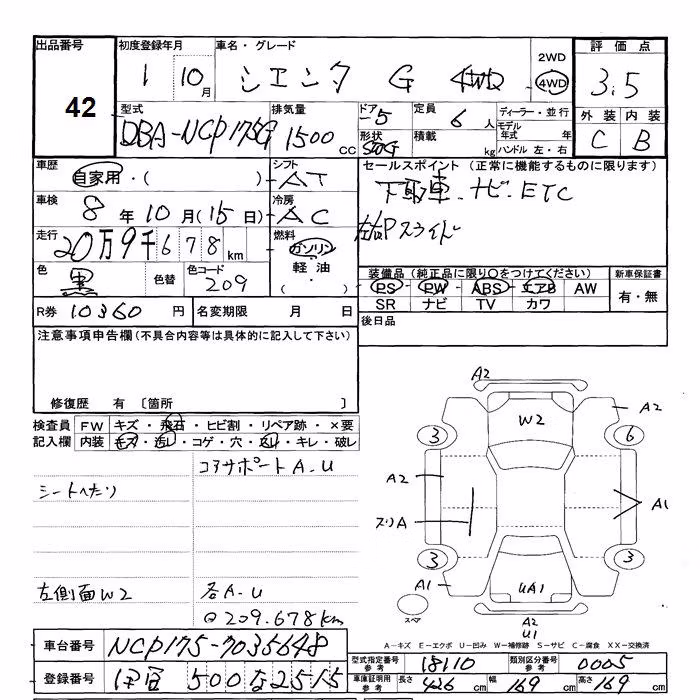 出品番号 初度登録年月 車名・グレード 評価点
42 1 10月 シエンタ G 4WD 2WD 4WD 3.5
型式 排気量 ドア 定員 ディーラー・並行 外装 内装
DBA-NCP175G 1500cc 5 6人 モデル年式 年 C B
形状 5DG 積載 kg ハンドル 左・右
車歴 自家用・( ) シフト AT セールスポイント (正常に機能するものに限ります)
車検 8年10月(15日) 冷房 AC 下取車.ナビ.ETC
走行 20万9千678km 燃料 ガソリン・軽油・( ) 左右Pスライド
色 黒 色替 色コード 209 装備品(純正品に限り○をつけてください) 新車保証書
PS PW ABS エアB AW 有・無
SR ナビ TV カワ
R券 10360円 名変期限 月 日 後日品
注意事項申告欄(不具合内容等は具体的に記入して下さい)
修復歴 有 〔箇所 〕
検査員記入欄 FW キズ・飛石・ヒビ割・リペア跡・×要
内装 キズ・汚レ・コゲ・穴・スレ・キレ・破レ
コアサポートA.U
シートへたり
左側面W2 各A.U
209.678km
A2
W2
A2
3
6
A2
A1
スリA
3
3
A1
UA1
スペア
A2
U1
A-キズ E-エクボ U-凹み W-補修跡 S-サビ C-腐食 XX-交換済
車台番号 NCP175-7035648 型式指定番号 参考 18110 類別区分番号 参考 0005
登録番号 伊豆 500 な2515 車庫証明用 参考 長さ 426cm 幅 169cm 高さ 169cm